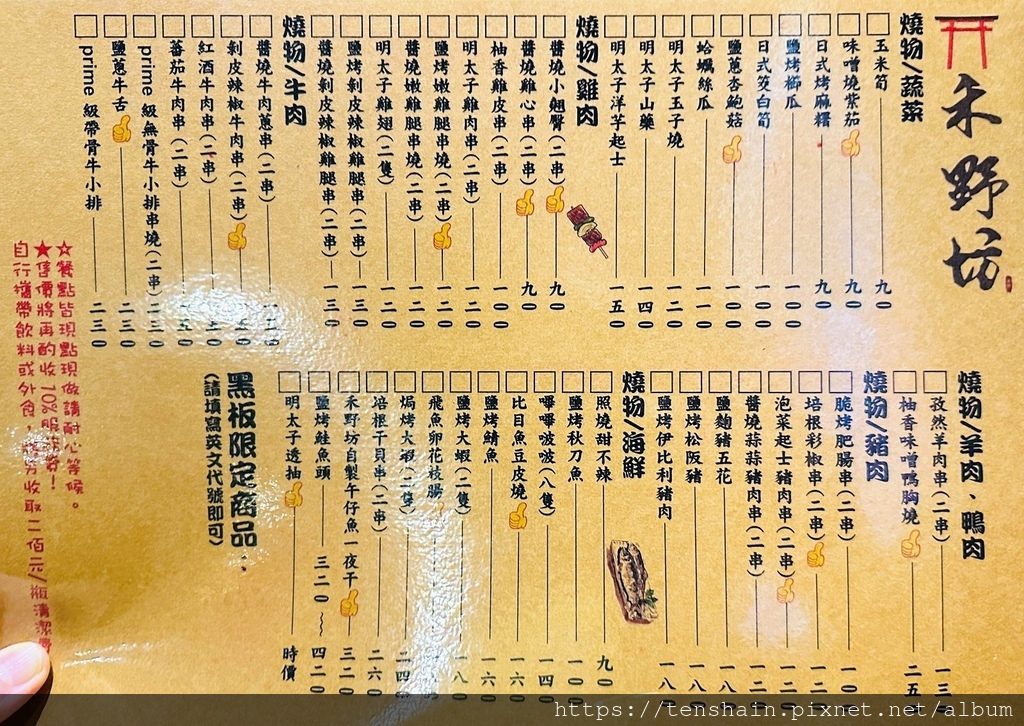 禾野坊
燒物/蔬菜
玉米筍 九0
味噌燒紫茄 九0
日式烤麻糬 九0
鹽烤櫛瓜 一00
日式茭白筍 一00
鹽蔥杏鮑菇 一00
蛤蠣絲瓜 一一0
明太子玉子燒 一二0
明太子山藥 一四0
明太子洋芋起士 一五0
燒物/雞肉
醬燒小翅臀(二串) 九0
醬燒雞心串(二串) 九0
柚香雞皮串(二串) 一00
明太子雞肉串(二串) 一二0
鹽烤嫩雞腿串燒(二串) 一二0
醬燒嫩雞腿串燒(二串) 一二0
明太子雞翅(二隻) 一二0
鹽烤剝皮辣椒雞腿串(二串) 一三0
醬燒剝皮辣椒雞腿串(二串) 一三0
燒物/牛肉
醬燒牛肉蔥串(二串)
剝皮辣椒牛肉串(二串)
紅酒牛肉串(二串)
蕃茄牛肉串(二串)
prime 級無骨牛小排串燒(二串) 二三0
鹽蔥牛舌 二三0
prime 級帶骨牛小排 二三0
燒物/羊肉、鴨肉
孜然羊肉串(二串) 一三0
柚香味噌鴨胸燒 二五0
燒物/豬肉
脆烤肥腸串(二串) 一00
培根彩椒串(二串) 一二0
泡菜起士豬肉串(二串) 一二0
醬燒蒜蒜豬肉串(二串) 一二0
鹽麴豬五花 一八0
鹽烤松阪豬 一八0
鹽烤伊比利豬肉 一八
燒物/海鮮
照燒甜不辣 九0
鹽烤秋刀魚 一00
嗶嗶啵啵(八隻) 一四0
比目魚豆皮燒 一六0
鹽烤鯖魚 一六0
鹽烤大蝦(二隻) 一八0
飛魚卵花枝腸
焗烤大蝦(二隻) 二四0
培根干貝串(二串) 二六0
禾野坊自製午仔魚一夜干 三二0
鹽烤鮭魚頭 三二0~四二0
明太子透抽 時價
黑板限定商品:
(請填寫英文代號即可)
☆餐點皆現點現做請耐心等候。
★售價將再酌收10%服務費!
自行攜帶飲料或外食,酌收取二佰元/瓶清潔費
https://tenshain.pixnet.net/album